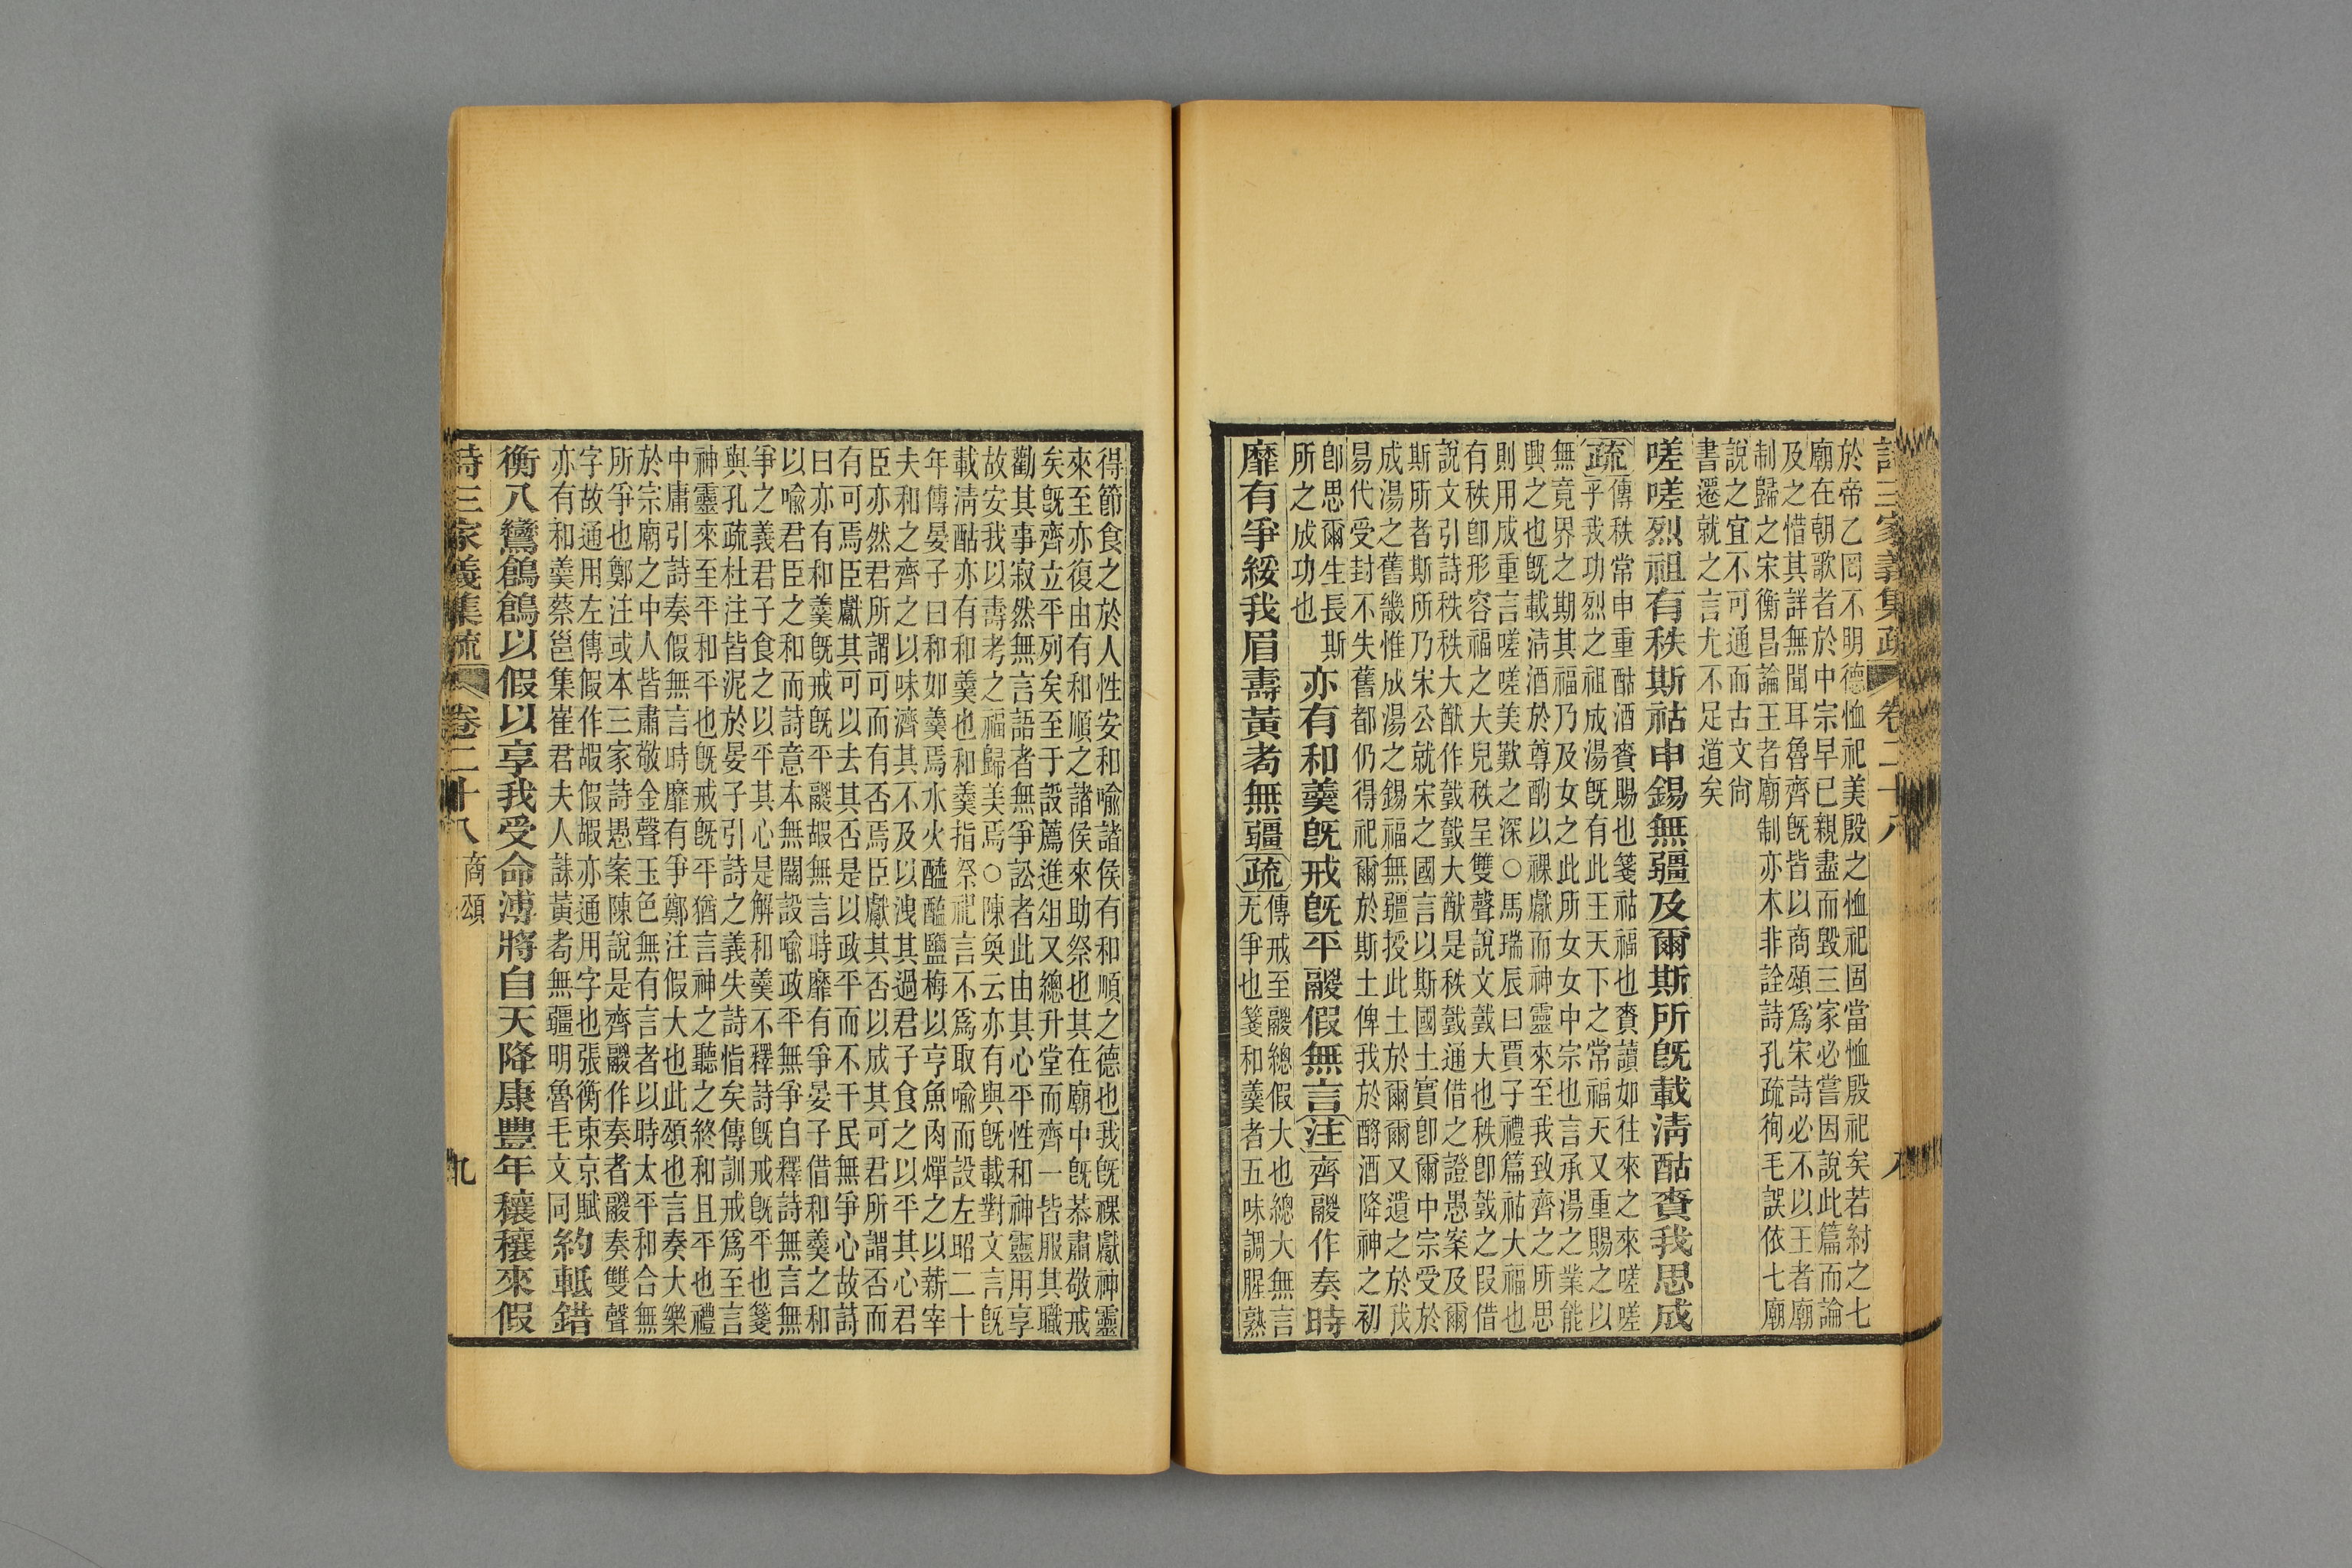 詩三家義集疏 卷二十八 八
於帝乙罔不明德恤祀美殷之恤祀固當恤殷祀矣若紂之七
廟在朝歌者於中宗早已親盡而毀三家必嘗因說此篇而論
及之惜其詳無聞耳魯齊旣皆以商頌爲宋詩必不以王者廟
制歸之宋衡昌論王者廟制亦本非詮詩孔疏徇毛誤依七廟
說之宜不可通而古文尙
書遷就之言尤不足道矣
嗟嗟烈祖有秩斯祜申錫無疆及爾斯所旣載淸酤賚我思成
疏傳秩常申重酤酒賚賜也箋祜福也賚讀如往來之來嗟嗟
乎我功烈之祖成湯旣有此王天下之常福天又重賜之以
無竟界之期其福乃及女之此所女女中宗也言承湯之業能
興之也旣載淸酒於尊酌以祼獻而神靈來至我致齊之所思
則用成重言嗟嗟美歎之深○馬瑞辰曰賈子禮篇祜大福也
有秩卽形容福之大皃秩呈雙聲說文戜大也秩卽戜之叚借
說文引詩秩秩大猷作戜戜大猷是秩戜通借之證愚案及爾
斯所者斯所乃宋公就宋之國言以斯國土實卽爾中宗受於
成湯之舊畿惟成湯之錫福無疆授此土於爾爾又遺之於我
易代受封不失舊都仍得祀爾於斯土俾我於酹酒降神之初
卽思爾生長斯
所之成功也
亦有和羹旣戒旣平鬷假無言注齊鬷作奏時
靡有爭綏我眉壽黃耇無疆疏傳戒至鬷總假大也總大無言
无爭也箋和羹者五味調腥熟
得節食之於人性安和喻諸侯有和順之德也我旣祼獻神靈
來至亦復由有和順之諸侯來助祭也其在廟中旣恭肅敬戒
矣旣齊立平列矣至于設薦進俎又總升堂而齊一皆服其職
勸其事寂然無言語者無爭訟者此由其心平性和神靈用享
故安我以壽考之福歸美焉○陳奐云亦有與旣載對文言旣
載淸酤亦有和羹也和羹指祭祀言不爲取喻而設左昭二十
年傳晏子曰和如羹焉水火醯醢鹽梅以亨魚肉燀之以薪宰
夫和之齊之以味濟其不及以洩其過君子食之以平其心君
臣亦然君所謂可而有否焉臣獻其否以成其可君所謂否而
有可焉臣獻其可以去其否是以政平而不干民無爭心故詩
曰亦有和羹旣戒旣平鬷嘏無言時靡有爭晏子借和羹之和
以喻君臣之和而詩意本無關設喻政平無爭自釋詩無言無
爭之義君子食之以平其心是解和羹不釋詩旣戒旣平也箋
與孔疏杜注皆泥於晏子引詩之義失詩恉矣傳訓戒爲至言
神靈來至平和平也旣戒旣平猶言神之聽之終和且平也禮
中庸引詩奏假無言時靡有爭鄭注假大也此頌也言奏大樂
於宗廟之中人皆肅敬金聲玉色無有言者以時太平和合無
所爭也鄭注或本三家詩愚案陳說是齊鬷作奏者鬷奏雙聲
字故通用左傳假作嘏假嘏亦通用字也張衡東京賦
亦有和羹蔡邕集崔君夫人誄黃耇無疆明魯毛文同
約軝錯
衡八鸞鶬鶬以假以享我受命溥將自天降康豐年穰穰來假
詩三家義集疏 卷二十八 商頌 九